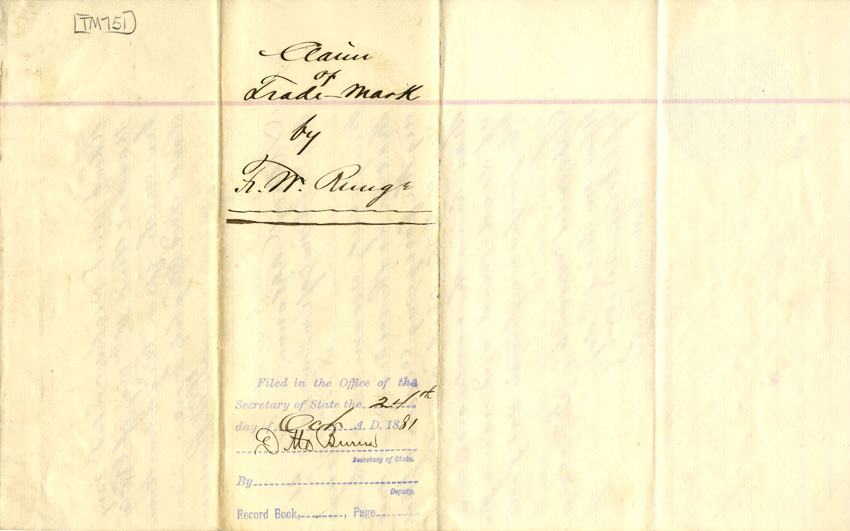 [TM751]
Claim
of
Trade-Mark
by
Fr. W. Runge
Filed in the Office of the
Secretary of State the 24th
day of Oct A. D. 1881
D M Burns
Secretary of State.
By
Deputy.
Record Book, , Page